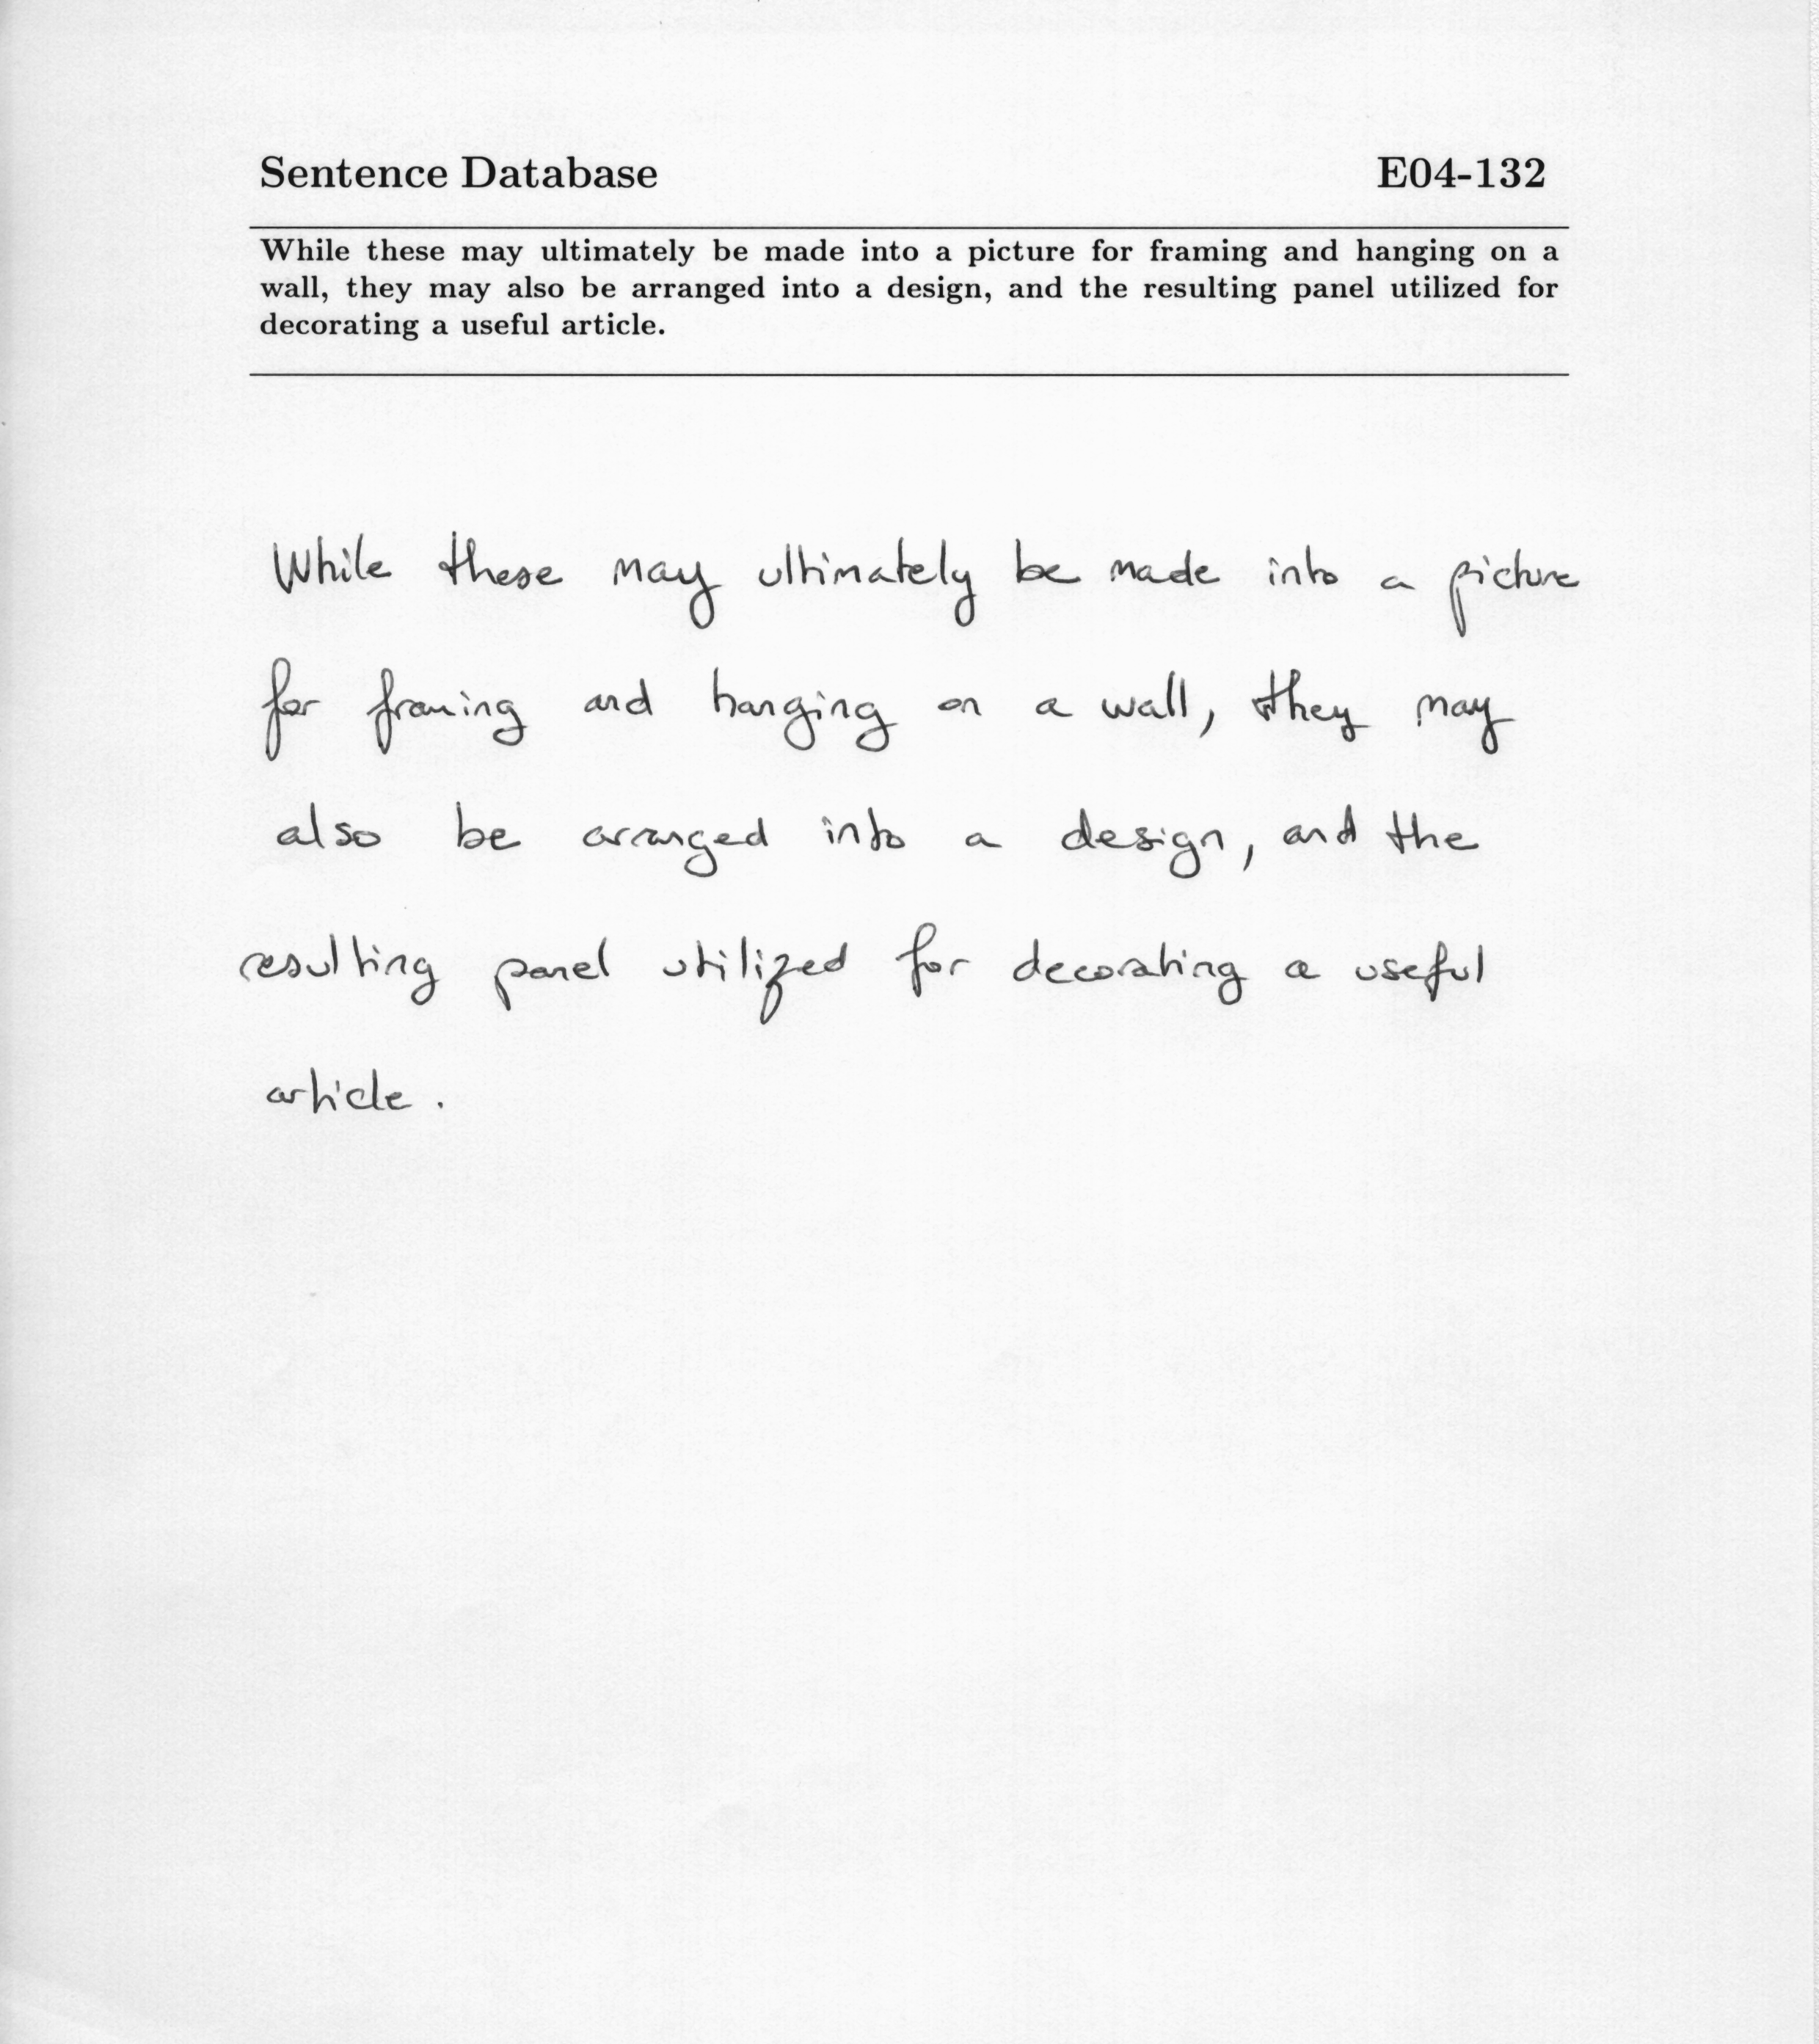 Sentence Database E04-132
While these may ultimately be made into a picture for framing and hanging on a
wall, they may also be arranged into a design, and the resulting panel utilized for
decorating a useful article.
While these may ultimately be made into a picture
for framing and hanging on a wall, they may
also be arranged into a design, and the
resulting panel utilized for decorating a useful
article.